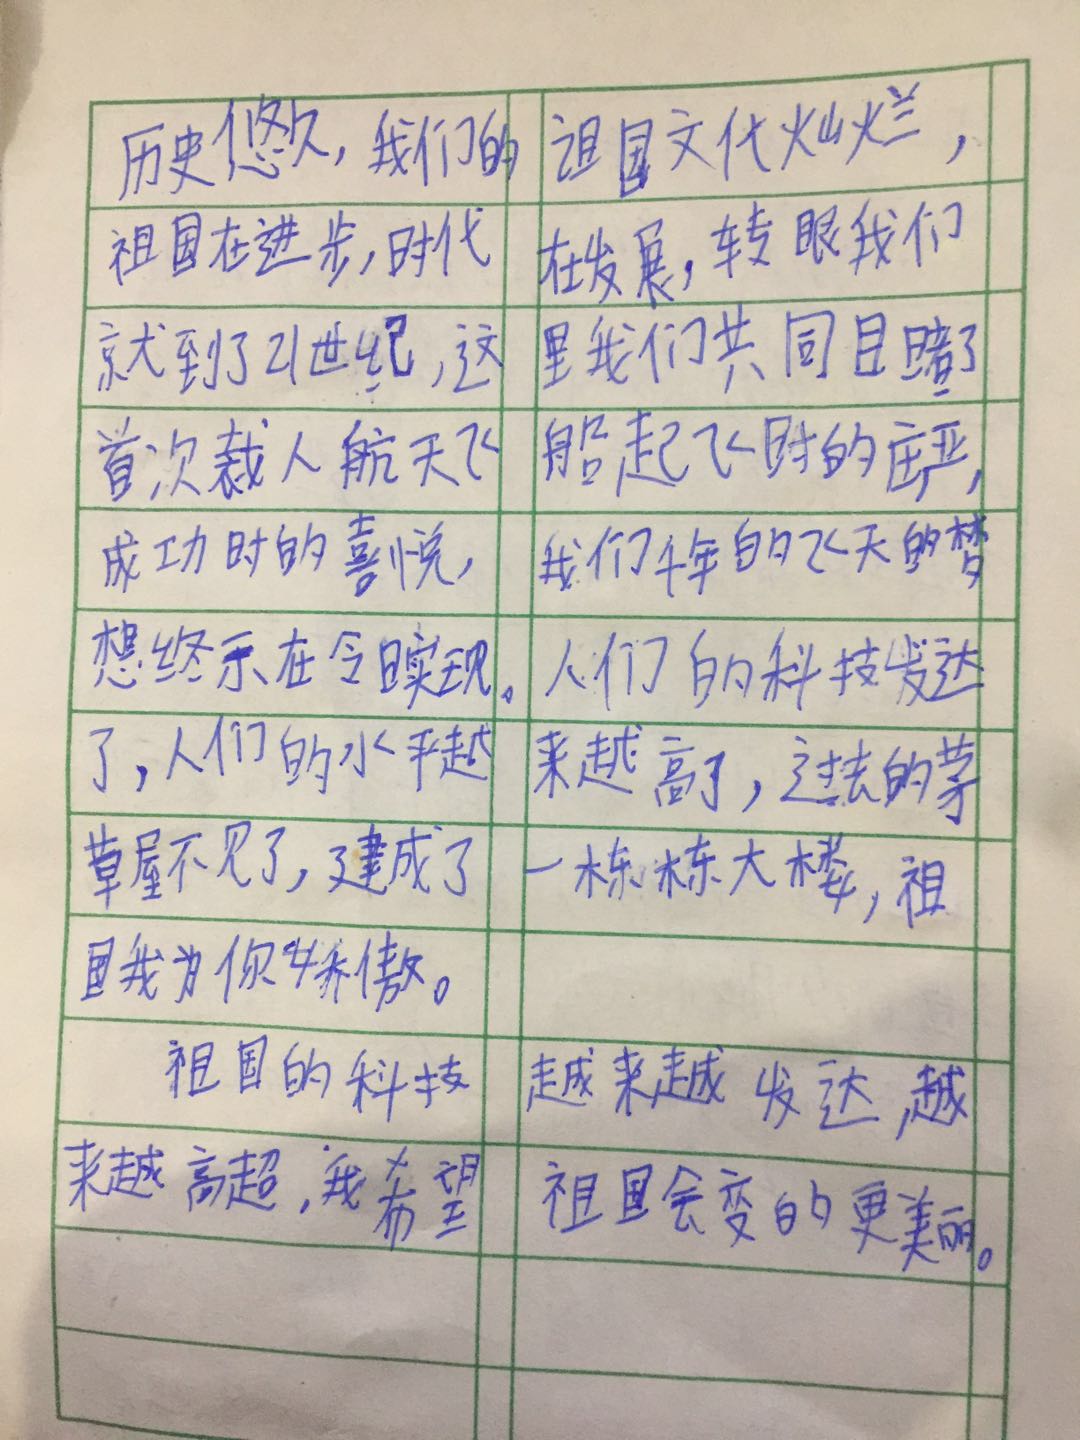 历史悠久，我们的祖国文代灿烂，
祖国在进步，时代在发展，转眼我们
就到了21世纪，这里我们共同目睹了
首次裁人航天飞船起飞时的庄严，
成功时的喜悦，我们千年的飞天的梦
想终示在令日实现。人们的科技发达
了，人们的水平越来越高了，过去的茅
草屋不见了，建成了一栋栋大楼，祖
国我为你娇傲。
祖国的科技越来越发达，越
来越高超，我希望祖国会变的更美丽。